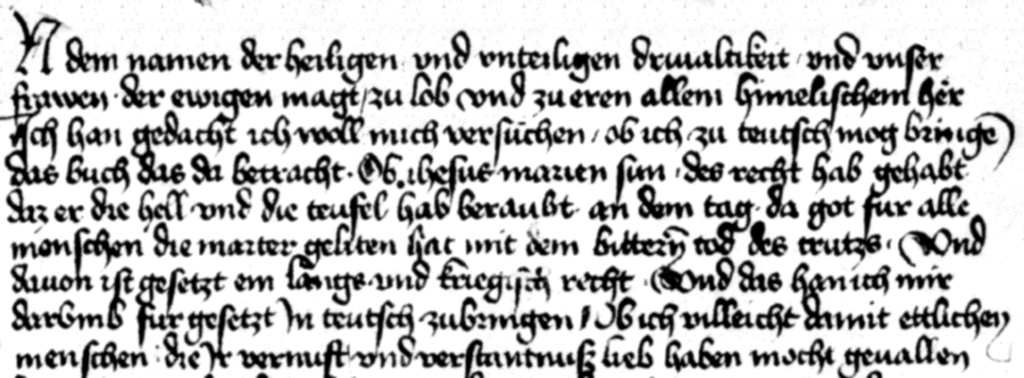 N dem namen der heiligen vnd vnteiligen driualtikeit · vnd vnser
frawen · der ewigen magt / zu lob vnd zu eren allem himelischem her
ich han gedacht ich woll mich versuchen / ob ich zu teutsch mog bringe
das buch das da betracht · Ob ihesus marien sun · des recht hab gehabt
daz er die hell vnd die teufel hab beraubt an dem tag da got fur alle
menschen die marter geliten hat mit dem bittern tod des crutzs · Vnd
dauon ist gesetzt ein langs vnd kriegisch recht · Vnd das han ich mir
darvmb fur gesetzt In teutsch zubringen / Ob ich villeicht damit ettlichen
menschen die Ir vernuft vnd verstantnusz lieb haben mocht geuallen